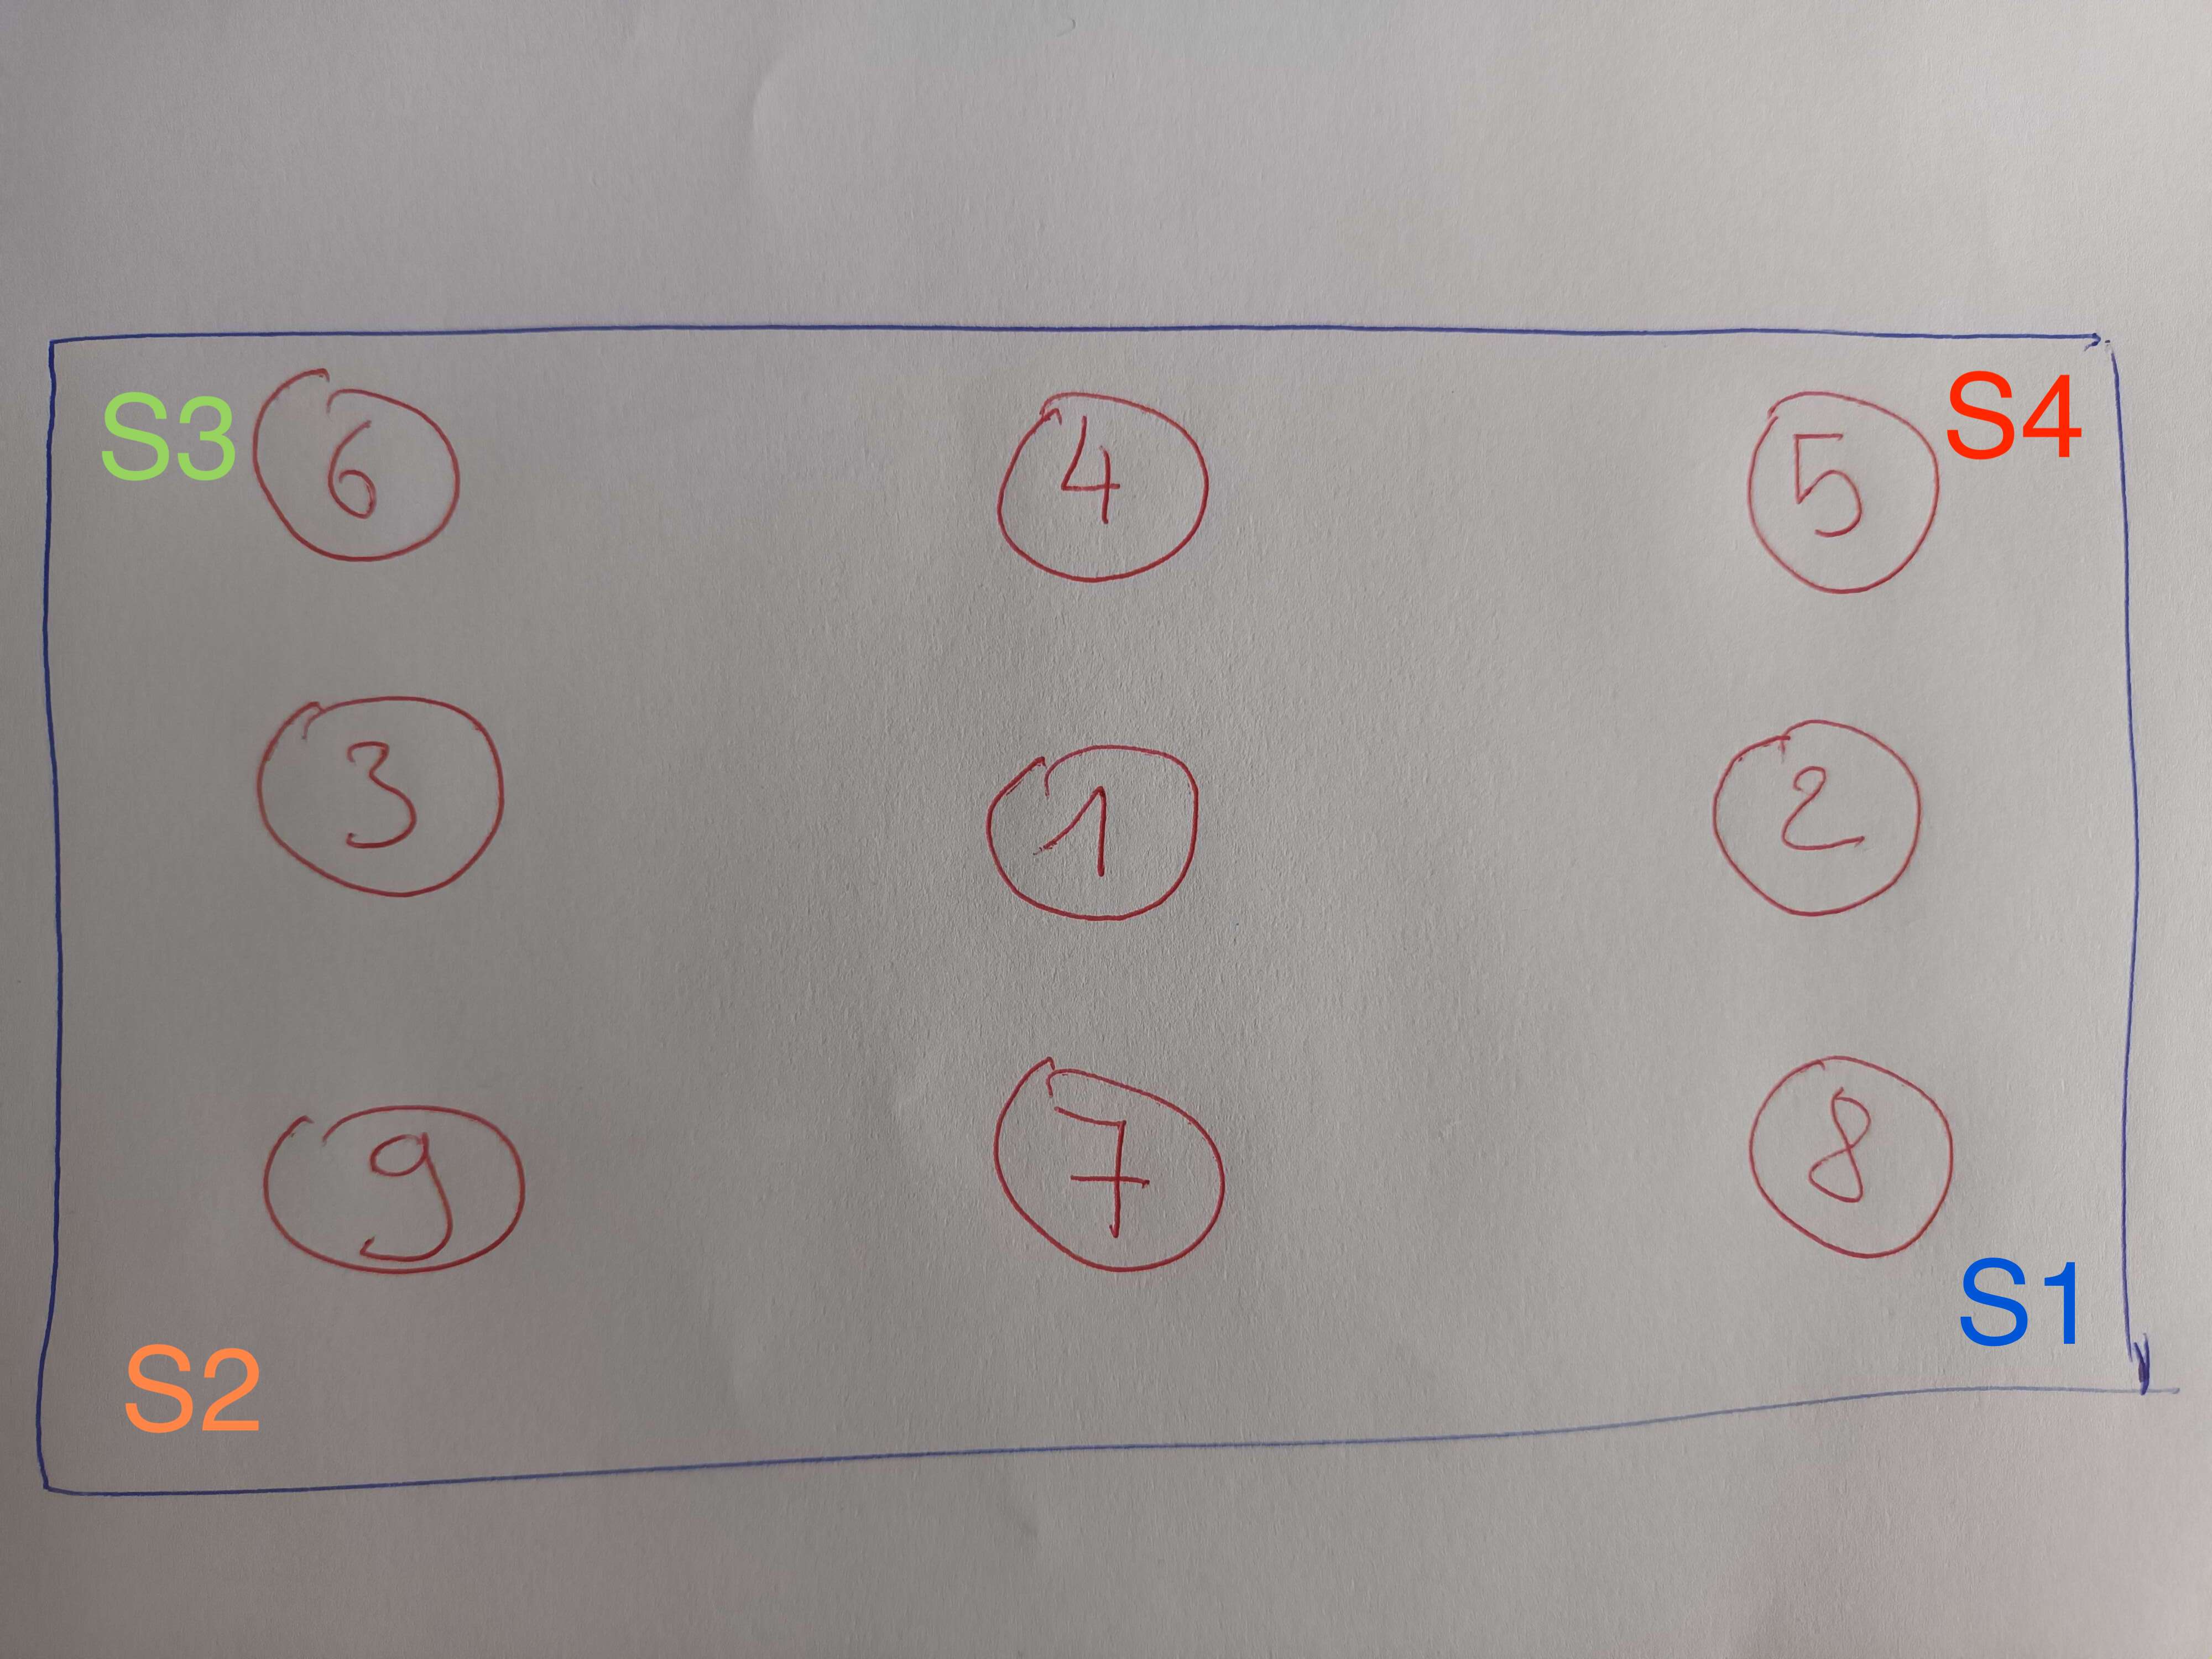 S3 6 4 5 S4
3 1 2
9 7 8
S2 S1